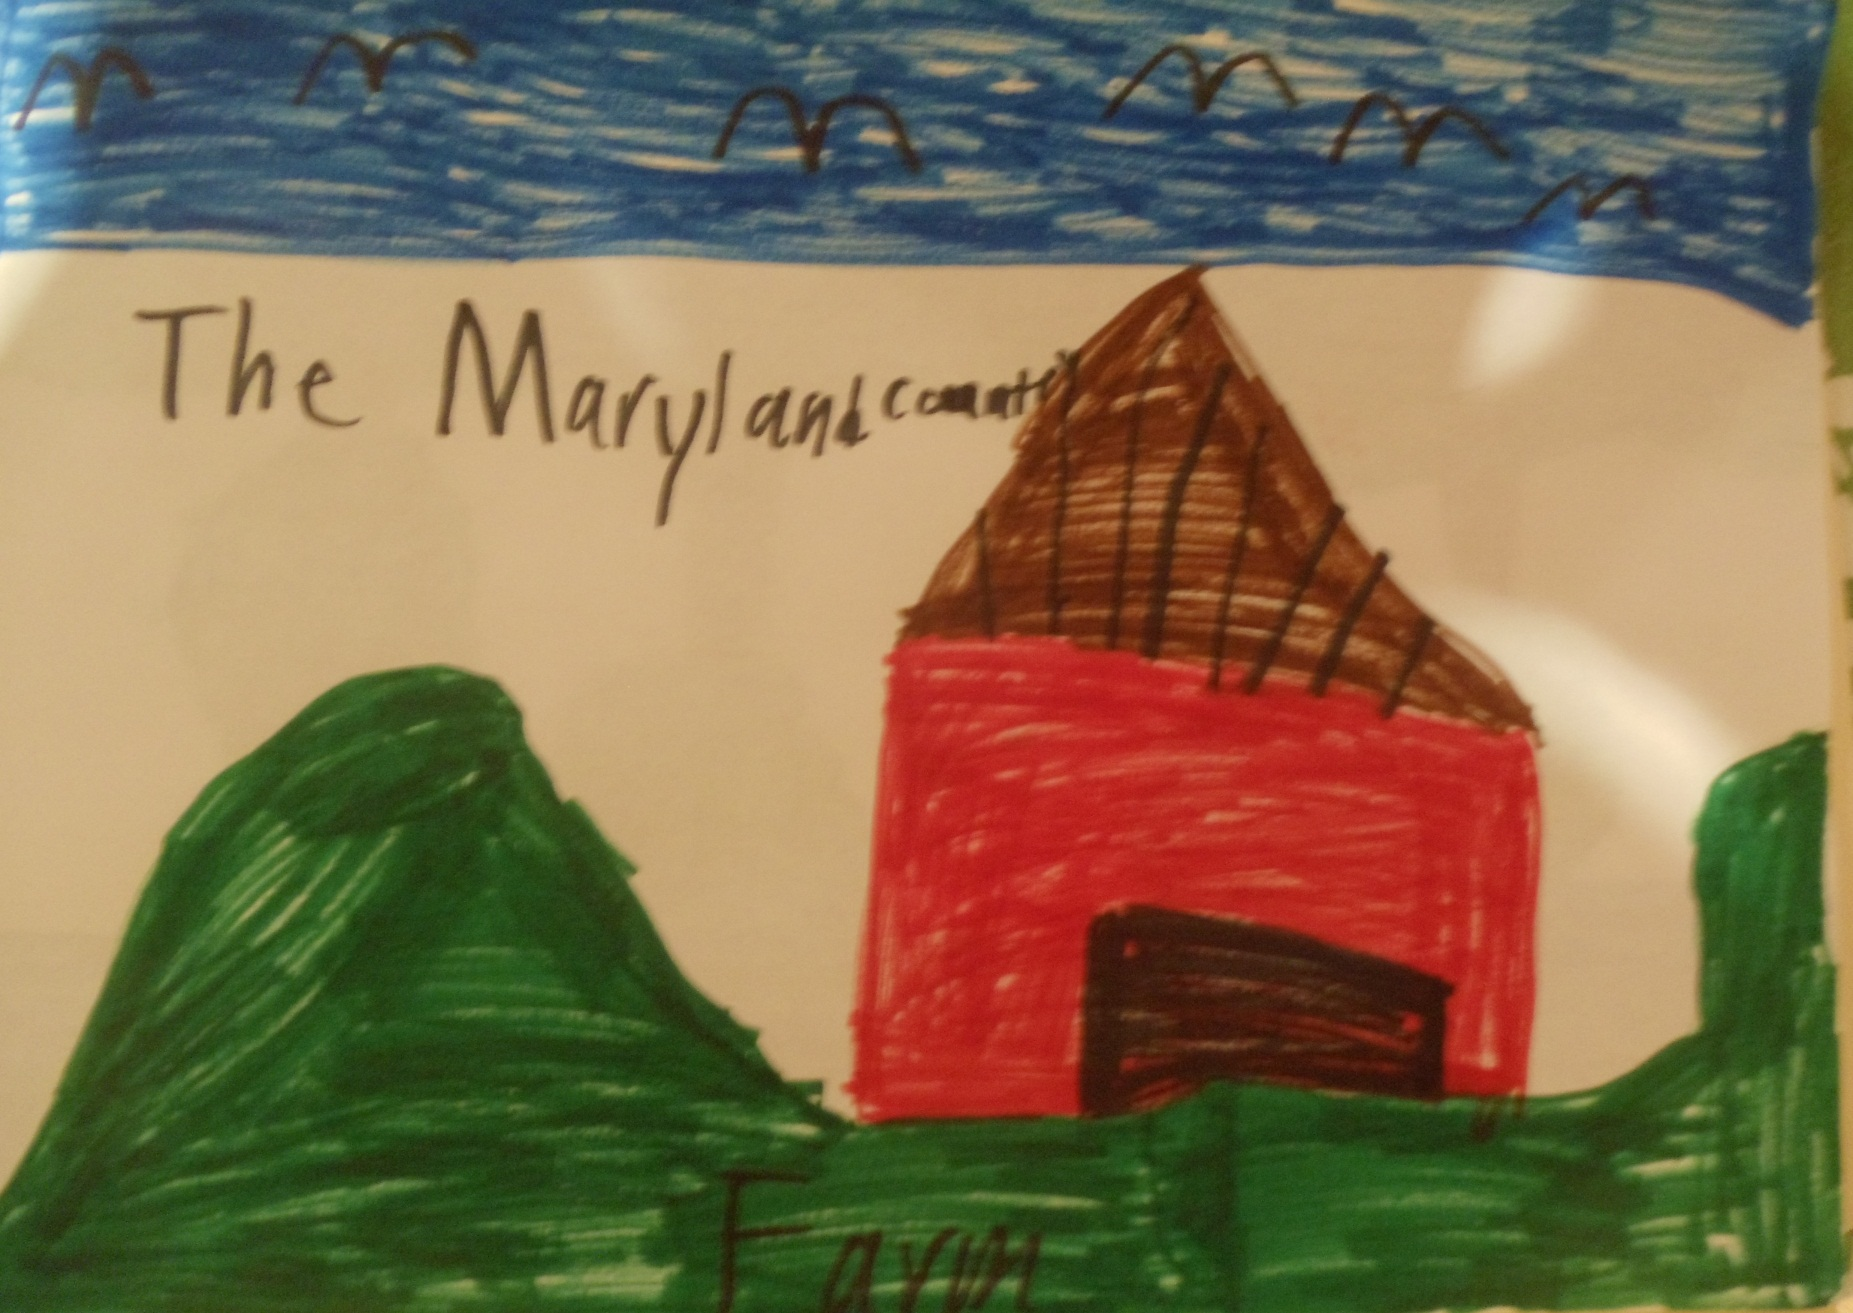 The Maryland County
Farm